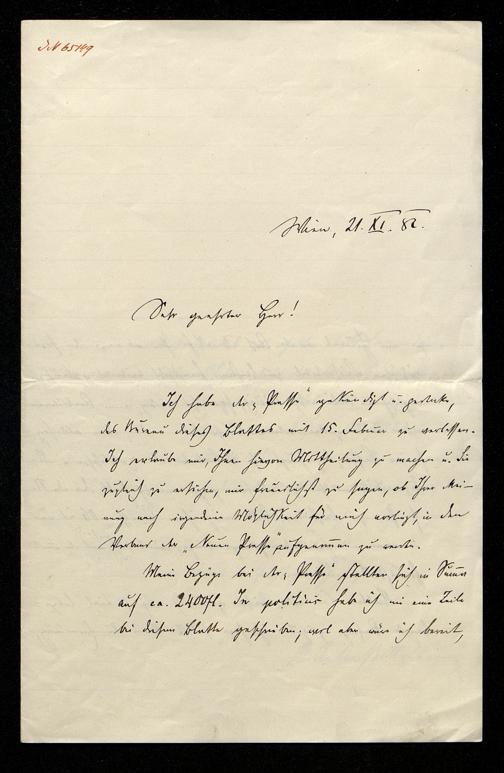 IN 65149
Wien, 21. XI. 82.
Sehr geehrter Herr!
Ich habe der „Presse“ gekündigt u. gedenke,
das Bureau dieses Blattes mit 15. Februar zu verlassen.
Ich erlaube mir, Ihnen hievon Mittheilung zu machen u. Sie
zugleich zu ersuchen, mir freundlichst zu sagen, ob Ihrer Mei-
nung nach irgendeine Möglichkeit für mich vorliegt, in den
Verband der „Neuen Presse“ aufgenommen zu werden.
Meine Bezüge bei der „Presse“ stellten sich in Summa
auf ca. 2400 fl. In politicis hab ich nie eine Zeile
bei diesem Blatte geschrieben; wol aber wäre ich bereit,